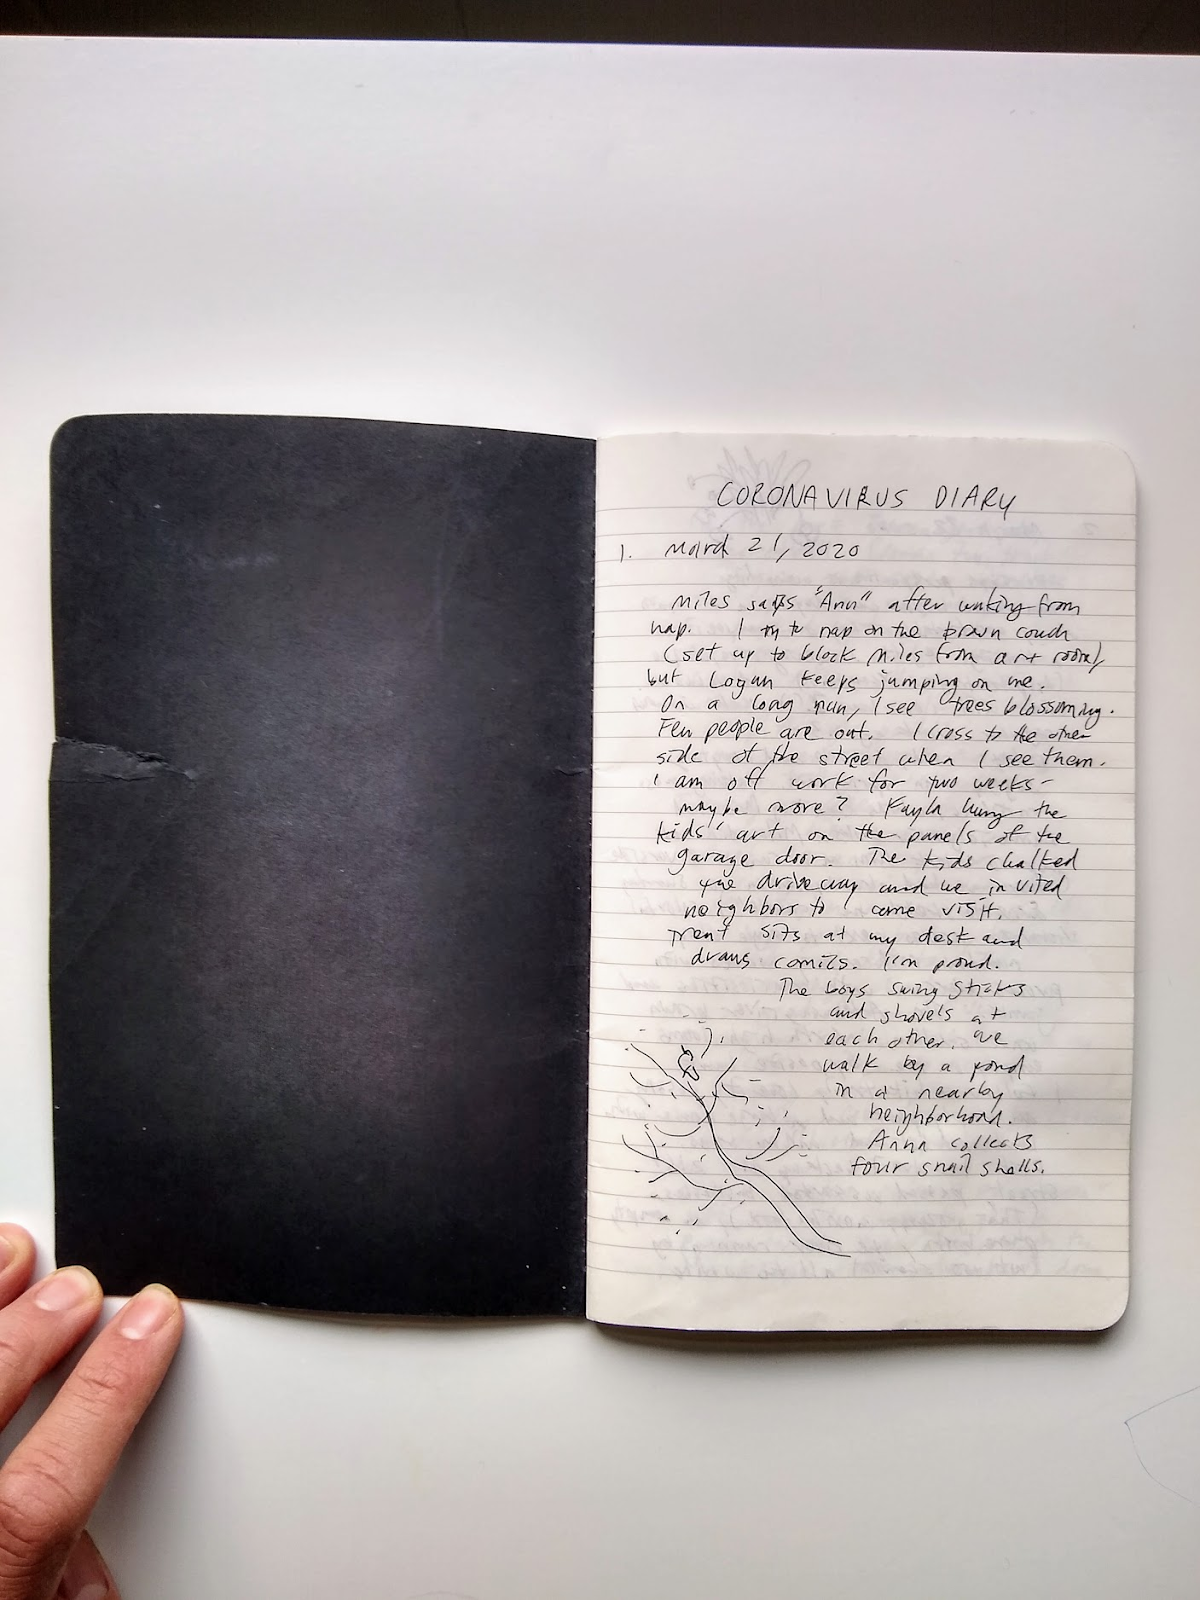 CORONAVIRUS DIARY
1. March 21, 2020
Miles says "Ann" after waking from
nap. I try to nap on the brown couch
(set up to block Miles from art room),
but Logan keeps jumping on me.
On a long run, I see trees blossoming.
Few people are out. I cross to the other
side of the street when I see them.
I am off work for two weeks-
maybe more? Kayla hung the
kids' art on the panels of the
garage door. The kids chalked
the driveway and we invited
neighbors to come visit.
Trent sits at my desk and
draws comics. I'm proud.
The boys swing sticks
and shovels at
each other. We
walk by a pond
in a nearby
neighborhood.
Anna collects
four snail shells.